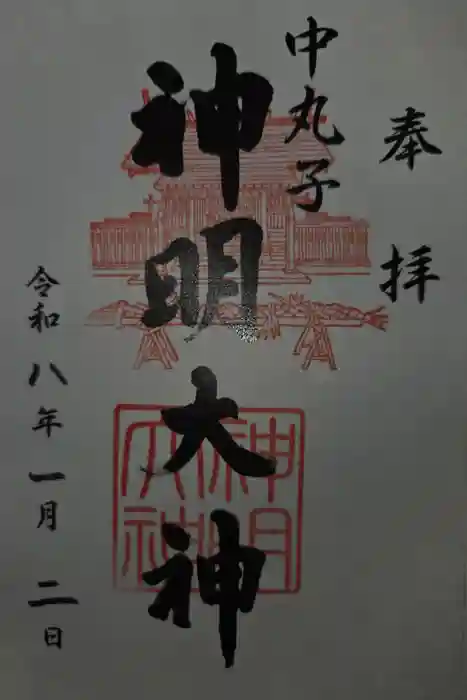 奉拝
中丸子
神明大神
神明大神
令和八年一月二日